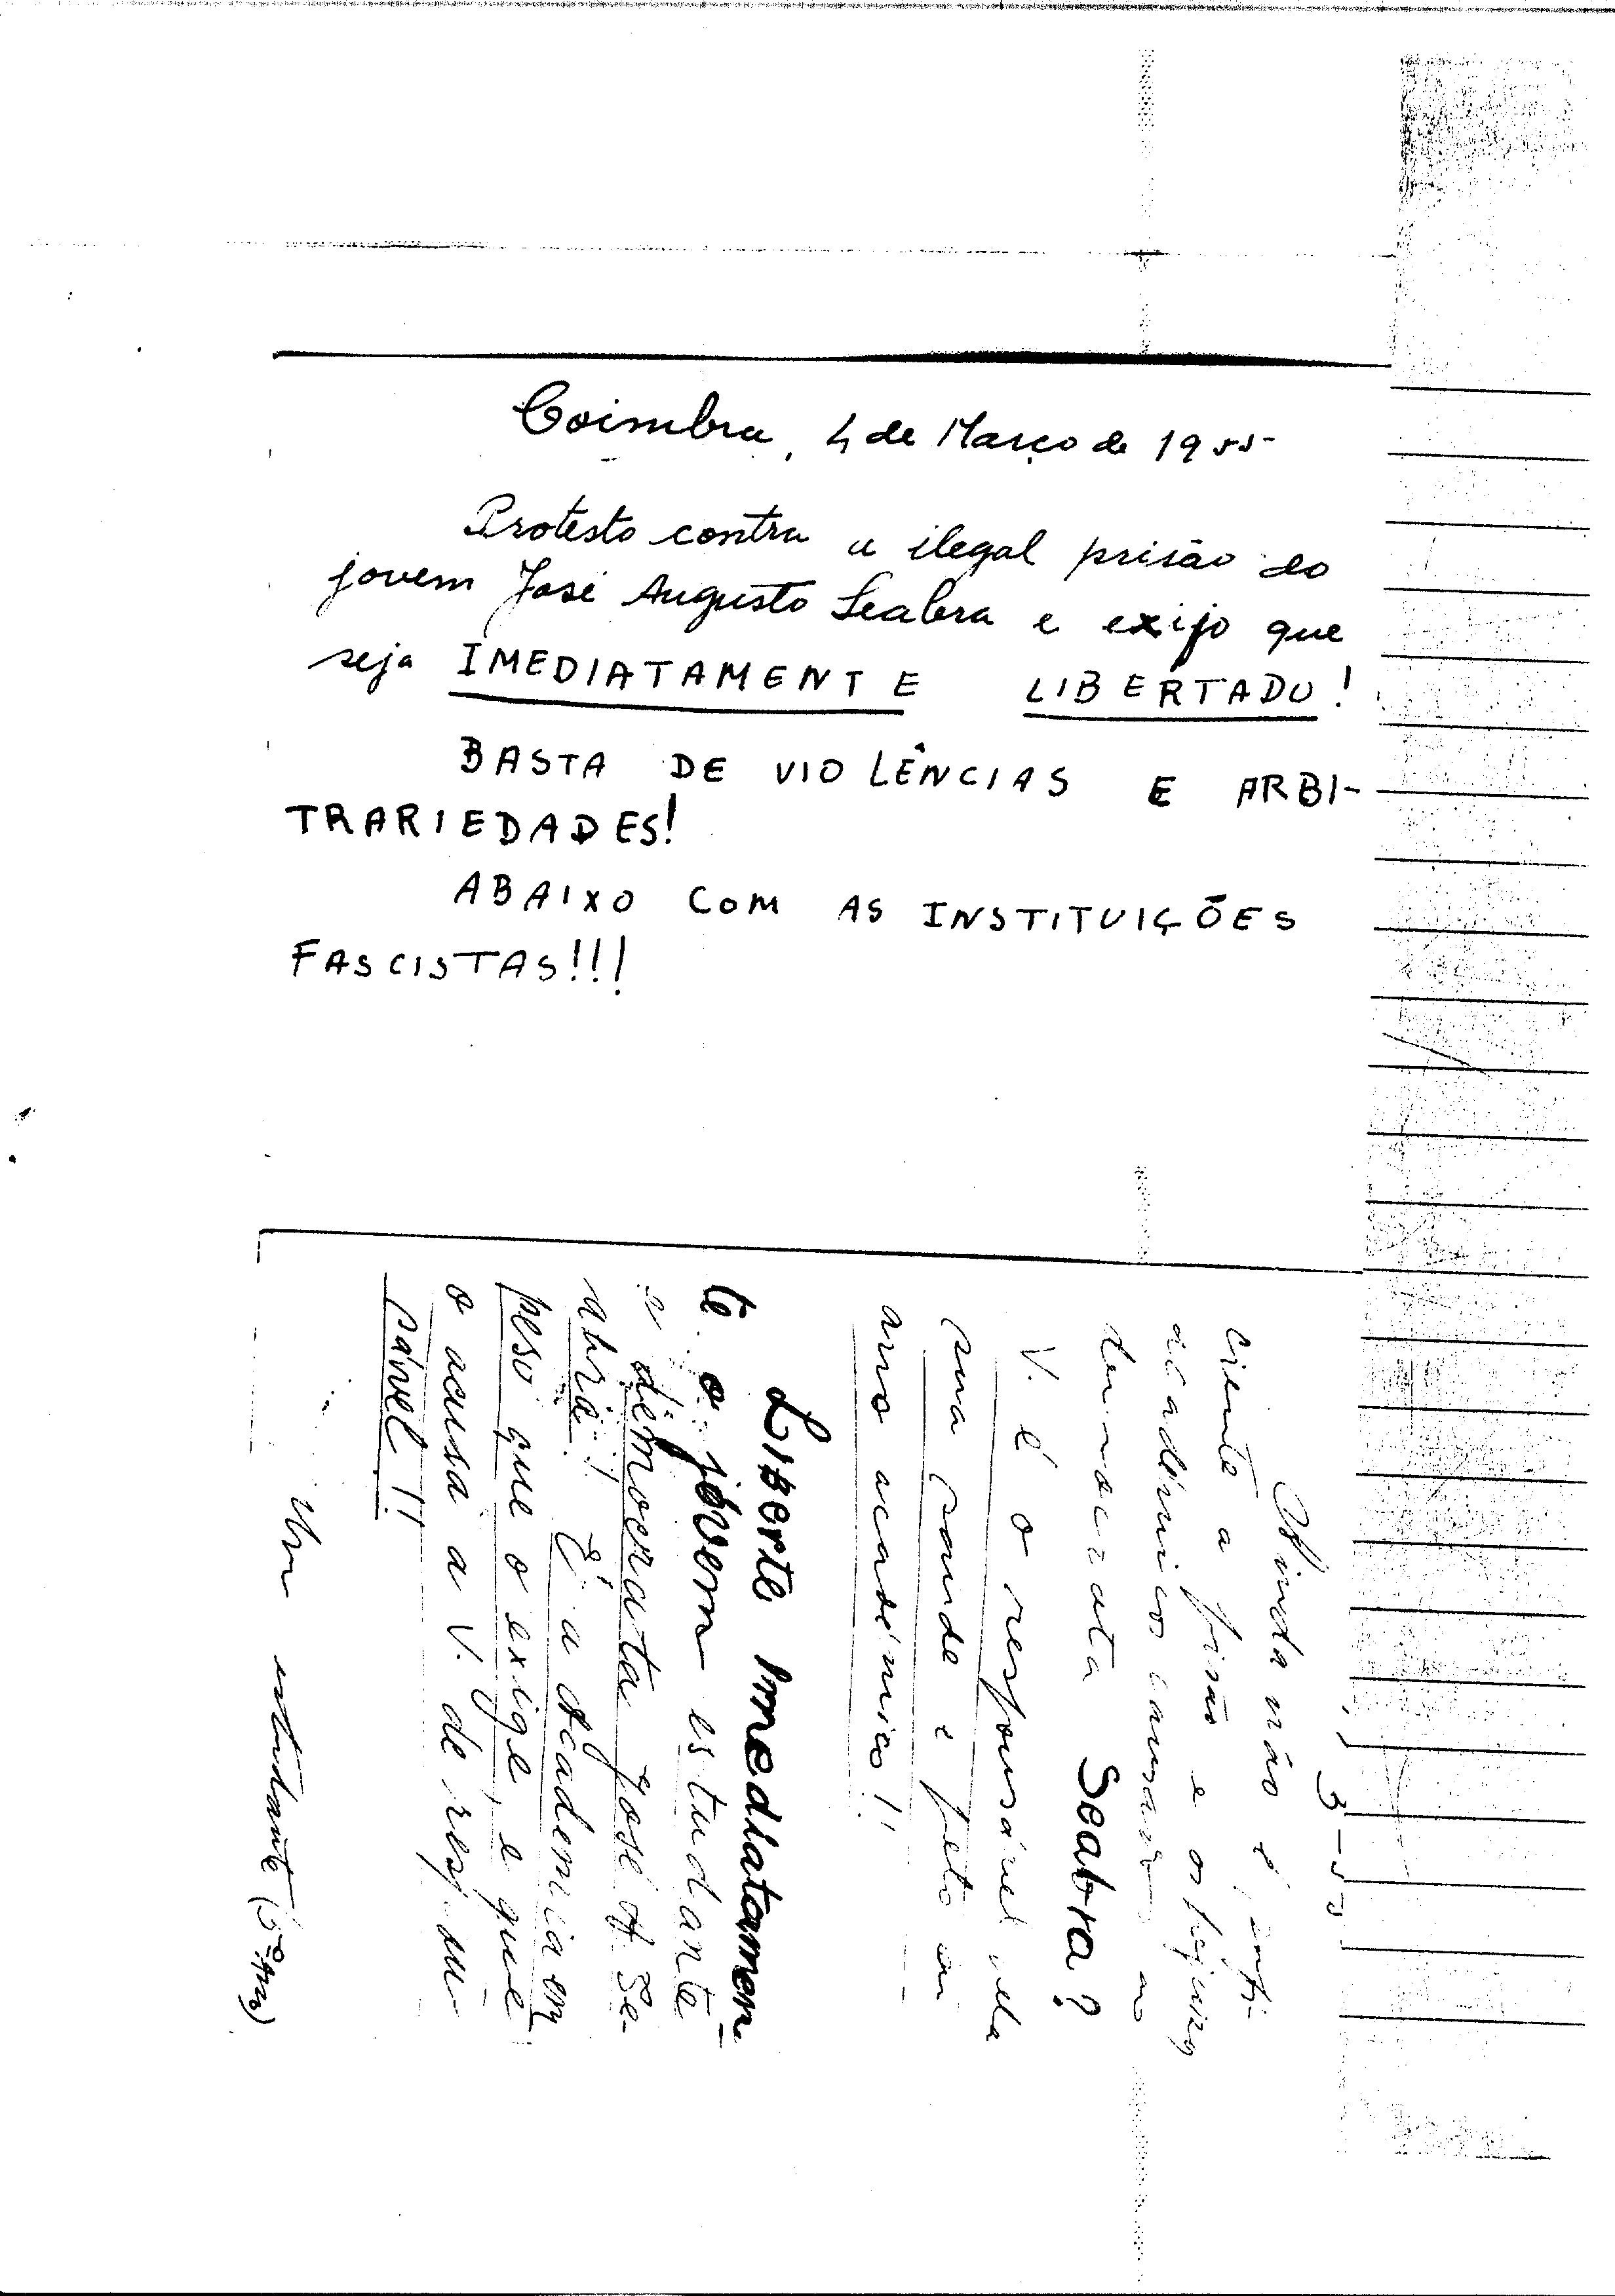 Coimbra, 4 de Março de 1955
Protesto contra a ilegal prisão do
jovem José Augusto Seabra e exijo que
seja IMEDIATAMENTE LIBERTADO!
BASTA DE VIOLÊNCIAS E ARBI-
TRARIEDADES!
ABAIXO COM AS INSTITUIÇÕES
FASCISTAS!!!
3-55
Ainda não é
ciente a prisão e os prejuizos
académicos causados ao
democrata Seabra?
V. é o responsável pela
sua saúde e pelo seu
ano académico!!
Liberte imediatamen-
te o jovem estudante
e democrata José A. Se-
abra! É a Academia em
peso que o exige, e que
o acusa a V. de respon-
sável!!
Um estudante (3º Ano)